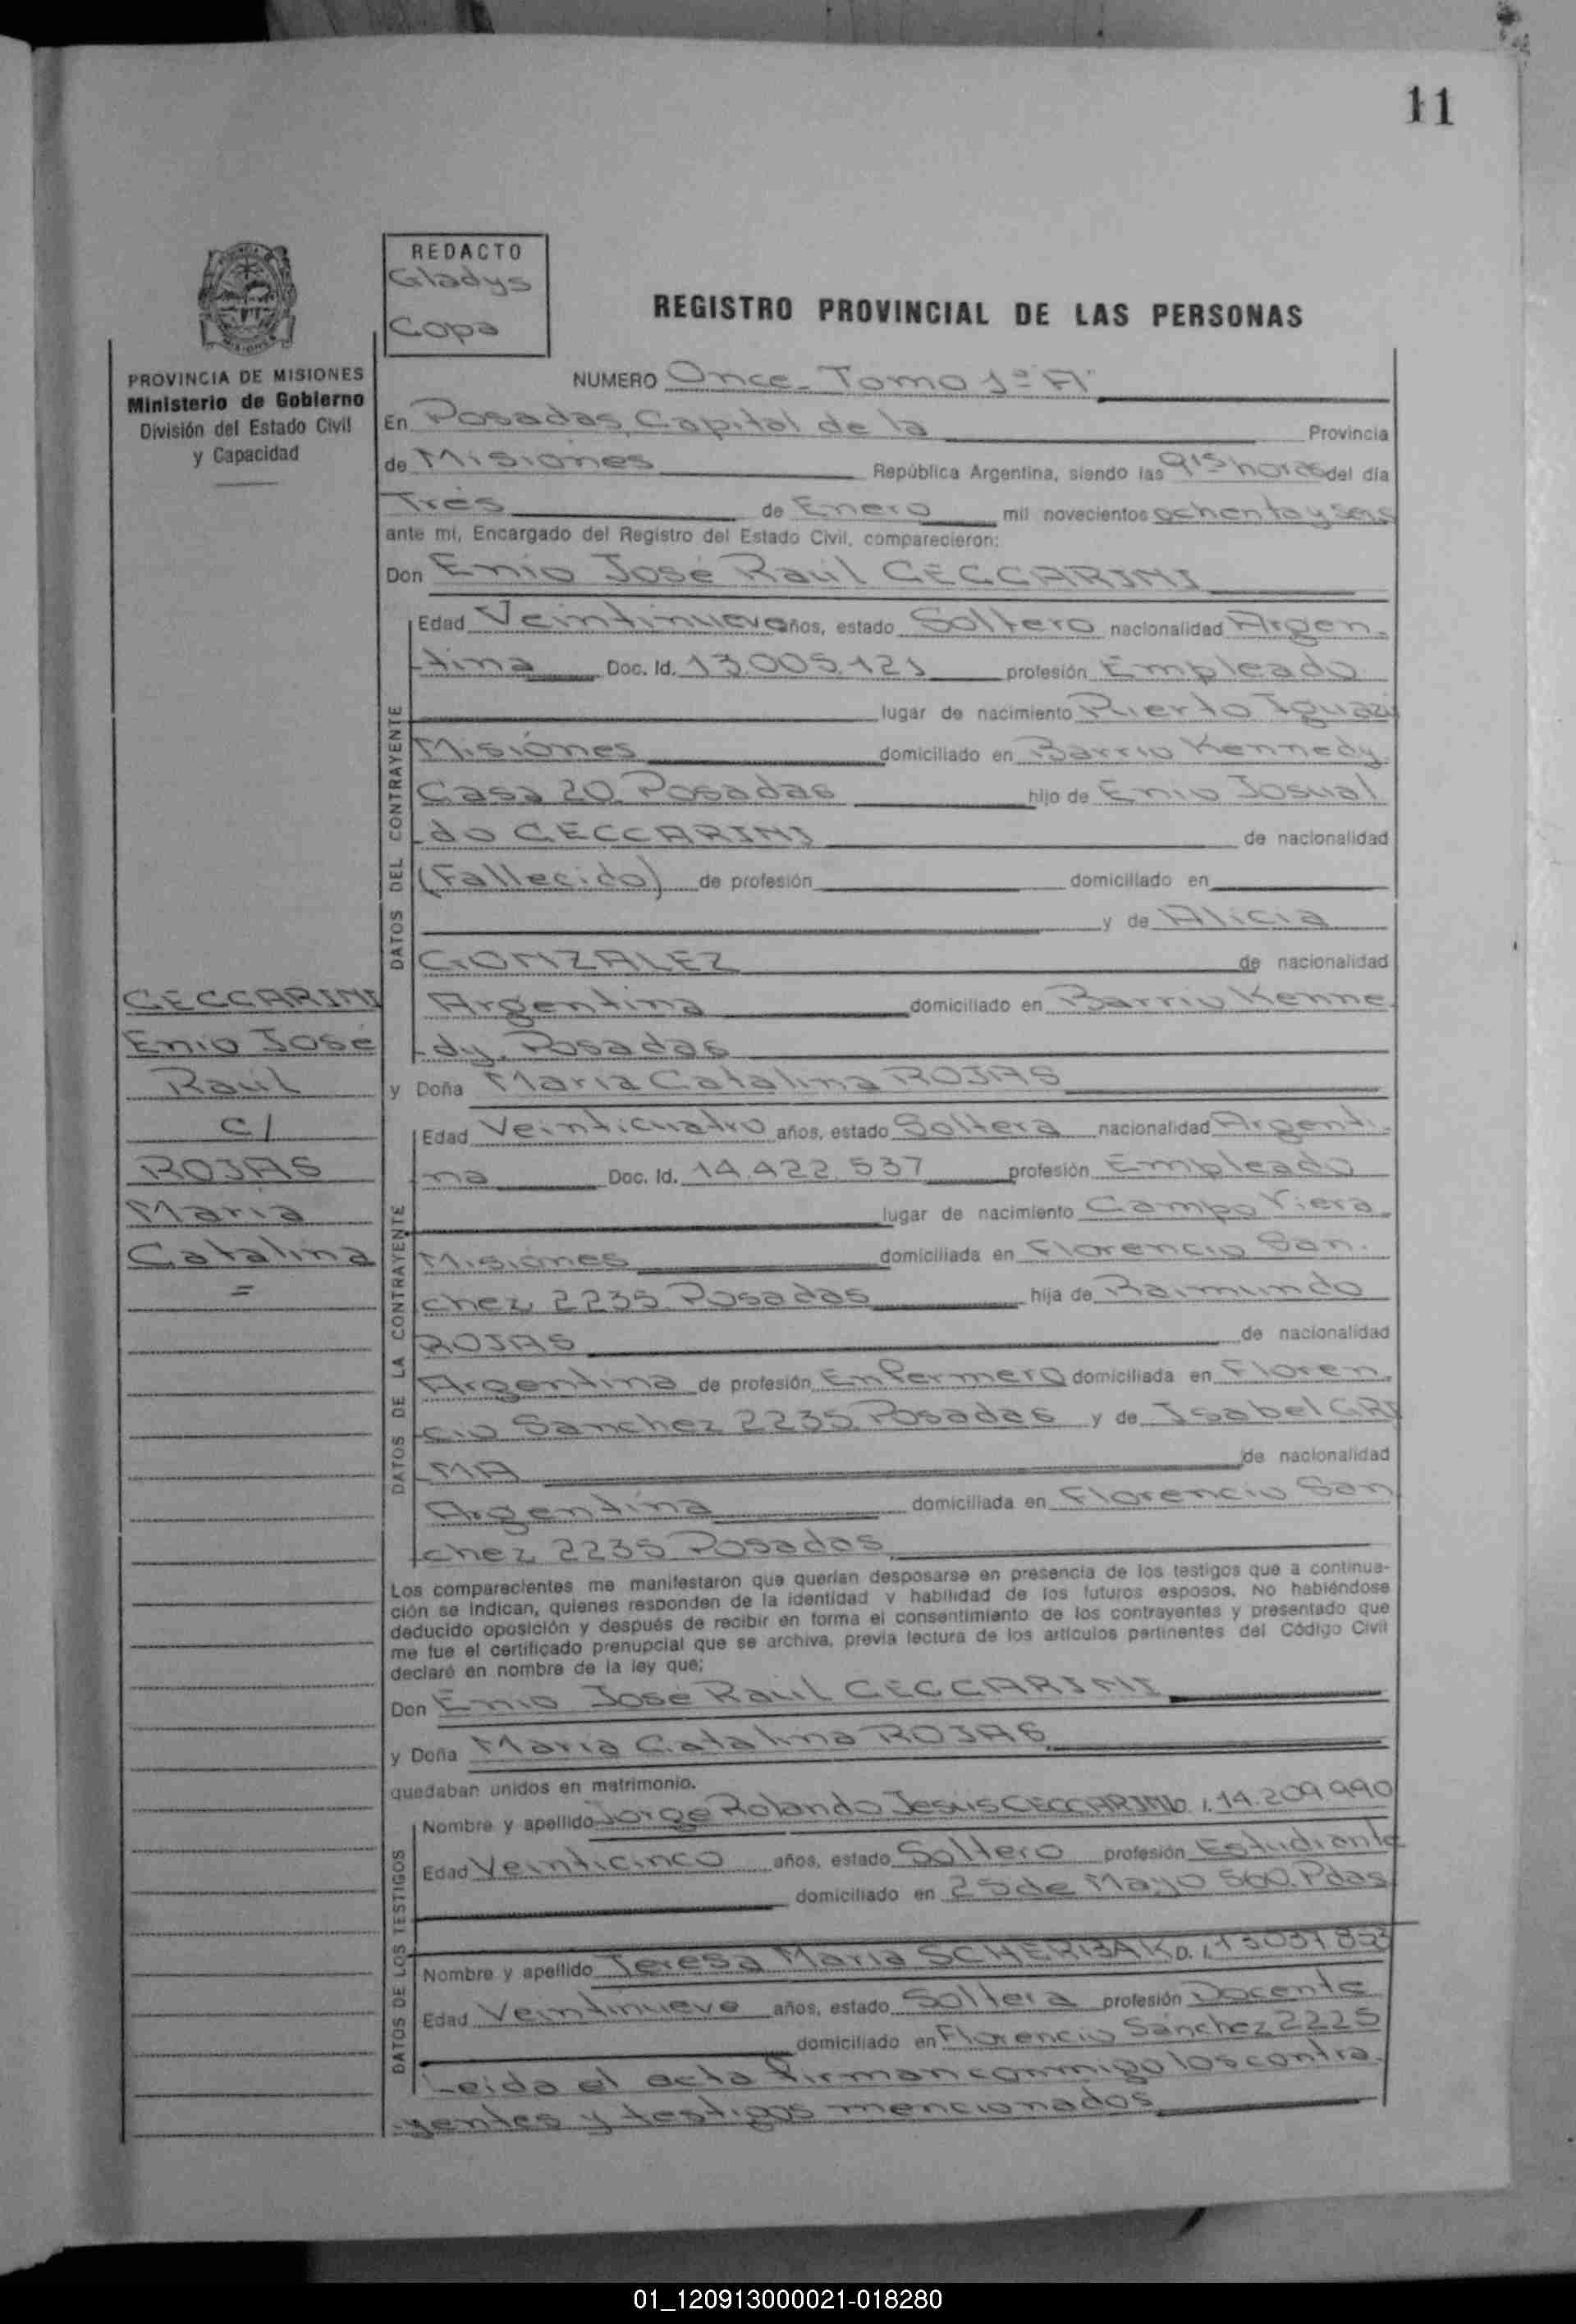 11
REDACTO
Gladys
Copa
REGISTRO PROVINCIAL DE LAS PERSONAS
PROVINCIA DE MISIONES
Ministerio de Gobierno
División del Estado Civil
y Capacidad
NUMERO Once- Tomo 1º "A"
En Posadas, Capital de la Provincia
de Misiones República Argentina, siendo las 9 15 horas del día
Tres de Enero mil novecientos ochenta y seis
ante mí, Encargado del Registro del Estado Civil, comparecieron:
Don Enio José Raúl CECCARINI
DATOS DEL CONTRAYENTE
Edad Veintinueve años, estado Soltero nacionalidad Argen-
tina Doc. Id. 13.005.121 profesión Empleado
lugar de nacimiento Puerto Iguazú
Misiones domiciliado en Barrio Kennedy
Casa 20. Posadas hijo de Enio Josual
do CECCARINI de nacionalidad
(Fallecido) de profesión domiciliado en
y de Alicia
GONZALEZ de nacionalidad
Argentina domiciliado en Barrio Kenne
dy. Posadas
y Doña María Catalina ROJAS
CECCARINI
Enio José
Raúl
c/
ROJAS
María
Catalina
=
DATOS DE LA CONTRAYENTE
Edad Veinticuatro años, estado Soltera nacionalidad Argenti-
na Doc. Id. 14.422.537 profesión Empleado
lugar de nacimiento Campo Viera
Misiones domiciliada en Florencio San-
chez 2235. Posadas hija de Raimundo
ROJAS de nacionalidad
Argentina de profesión Enfermero domiciliada en Floren
cio Sanchez 2235. Posadas y de Isabel GRI
MA de nacionalidad
Argentina domiciliada en Florencio San
chez 2235 Posadas
Los comparecientes me manifestaron que querían desposarse en presencia de los testigos que a continua-
ción se indican, quienes responden de la identidad y habilidad de los futuros esposos. No habiéndose
deducido oposición y después de recibir en forma el consentimiento de los contrayentes y presentado que
me fue el certificado prenupcial que se archiva, previa lectura de los artículos pertinentes del Código Civil
declaré en nombre de la ley que:
Don Enio José Raúl CECCARINI
y Doña María Catalina ROJAS
quedaban unidos en matrimonio.
DATOS DE LOS TESTIGOS
Nombre y apellido Jorge Rolando Jesús CECCARINI D.I. 14.209.990
Edad Veinticinco años, estado Soltero profesión Estudiante
domiciliado en 25 de Mayo 560. Pdas
Nombre y apellido Teresa María SCHERBAK D.I. 13037823
Edad Veintinueve años, estado Soltera profesión Docente
domiciliado en Florencio Sánchez 2225
Leida el acta firman conmigo los contra-
yentes y testigos mencionados
01_120913000021-018280